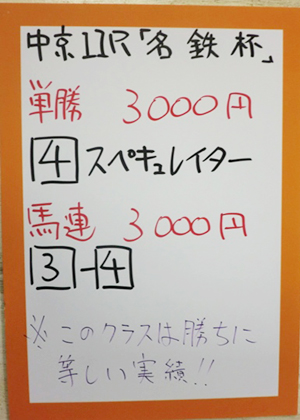 中京11R「名鉄杯」
単勝 3000円
4 スペキュレイター
馬連 3000円
3-4
※このクラスは勝ちに
等しい実績!!